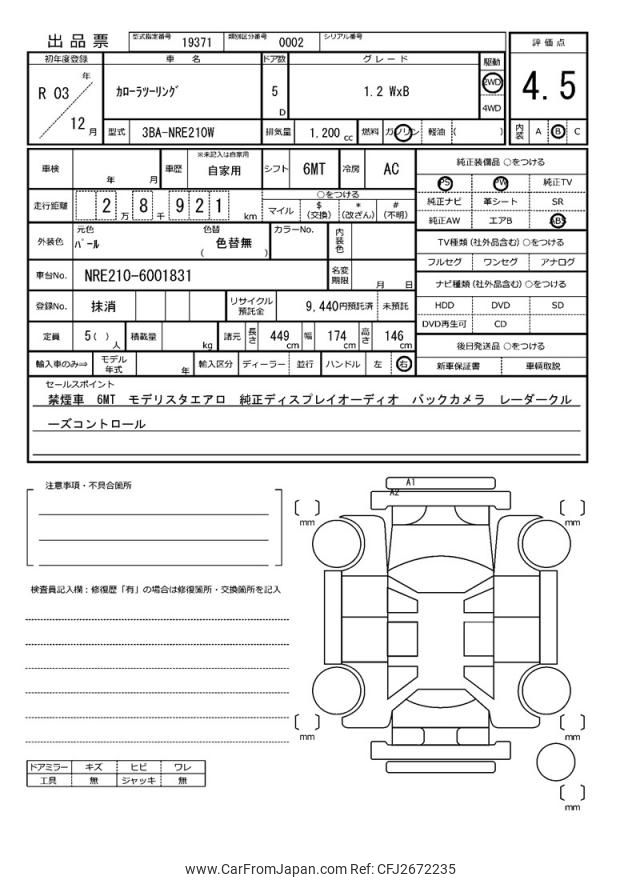 出品票
型式指定番号 19371 類別区分番号 0002 シリアル番号
初年度登録 車名 ドア数 グレード 駆動 評価点
R 03 年 12 月 カローラツーリング 5 D 1.2 WxB 2WD 4WD 4.5
型式 3BA-NRE210W 排気量 1.200 cc 燃料 ガソリン 軽油 ( ) 内装 A B C
車検 年 月 車歴 ※未記入は自家用 自家用 シフト 6MT 冷房 AC
走行距離 2 万 8 千 9 2 1 km ○をつける
マイル $ (交換) * (改ざん) # (不明)
外装色 元色 パール 色替 色替無 ( ) カラーNo. 内装色
車台No. NRE210-6001831 名変期限 月 日
登録No. 抹消 リサイクル預託金 9,440円預託済 未預託
定員 5( ) 人 積載量 kg 諸元 長さ 449 cm 幅 174 cm 高さ 146 cm
輸入車のみ⇒ モデル年式 年 輸入区分 ディーラー 並行 ハンドル 左 右
純正装備品 ○をつける
PS PW 純正TV
純正ナビ 革シート SR
純正AW エアB ABS
TV種類 (社外品含む) ○をつける
フルセグ ワンセグ アナログ
ナビ種類 (社外品含む) ○をつける
HDD DVD SD
DVD再生可 CD
後日発送品 ○をつける
新車保証書 車輌取説
セールスポイント
禁煙車 6MT モデリスタエアロ 純正ディスプレイオーディオ バックカメラ レーダークル
ーズコントロール
注意事項・不具合箇所
検査員記入欄：修復歴「有」の場合は修復箇所・交換箇所を記入
A1
A2
mm
mm
mm
mm
mm
ドアミラー キズ ヒビ ワレ
工具 無 ジャッキ 無
www.CarFromJapan.com Ref: CFJ2672235